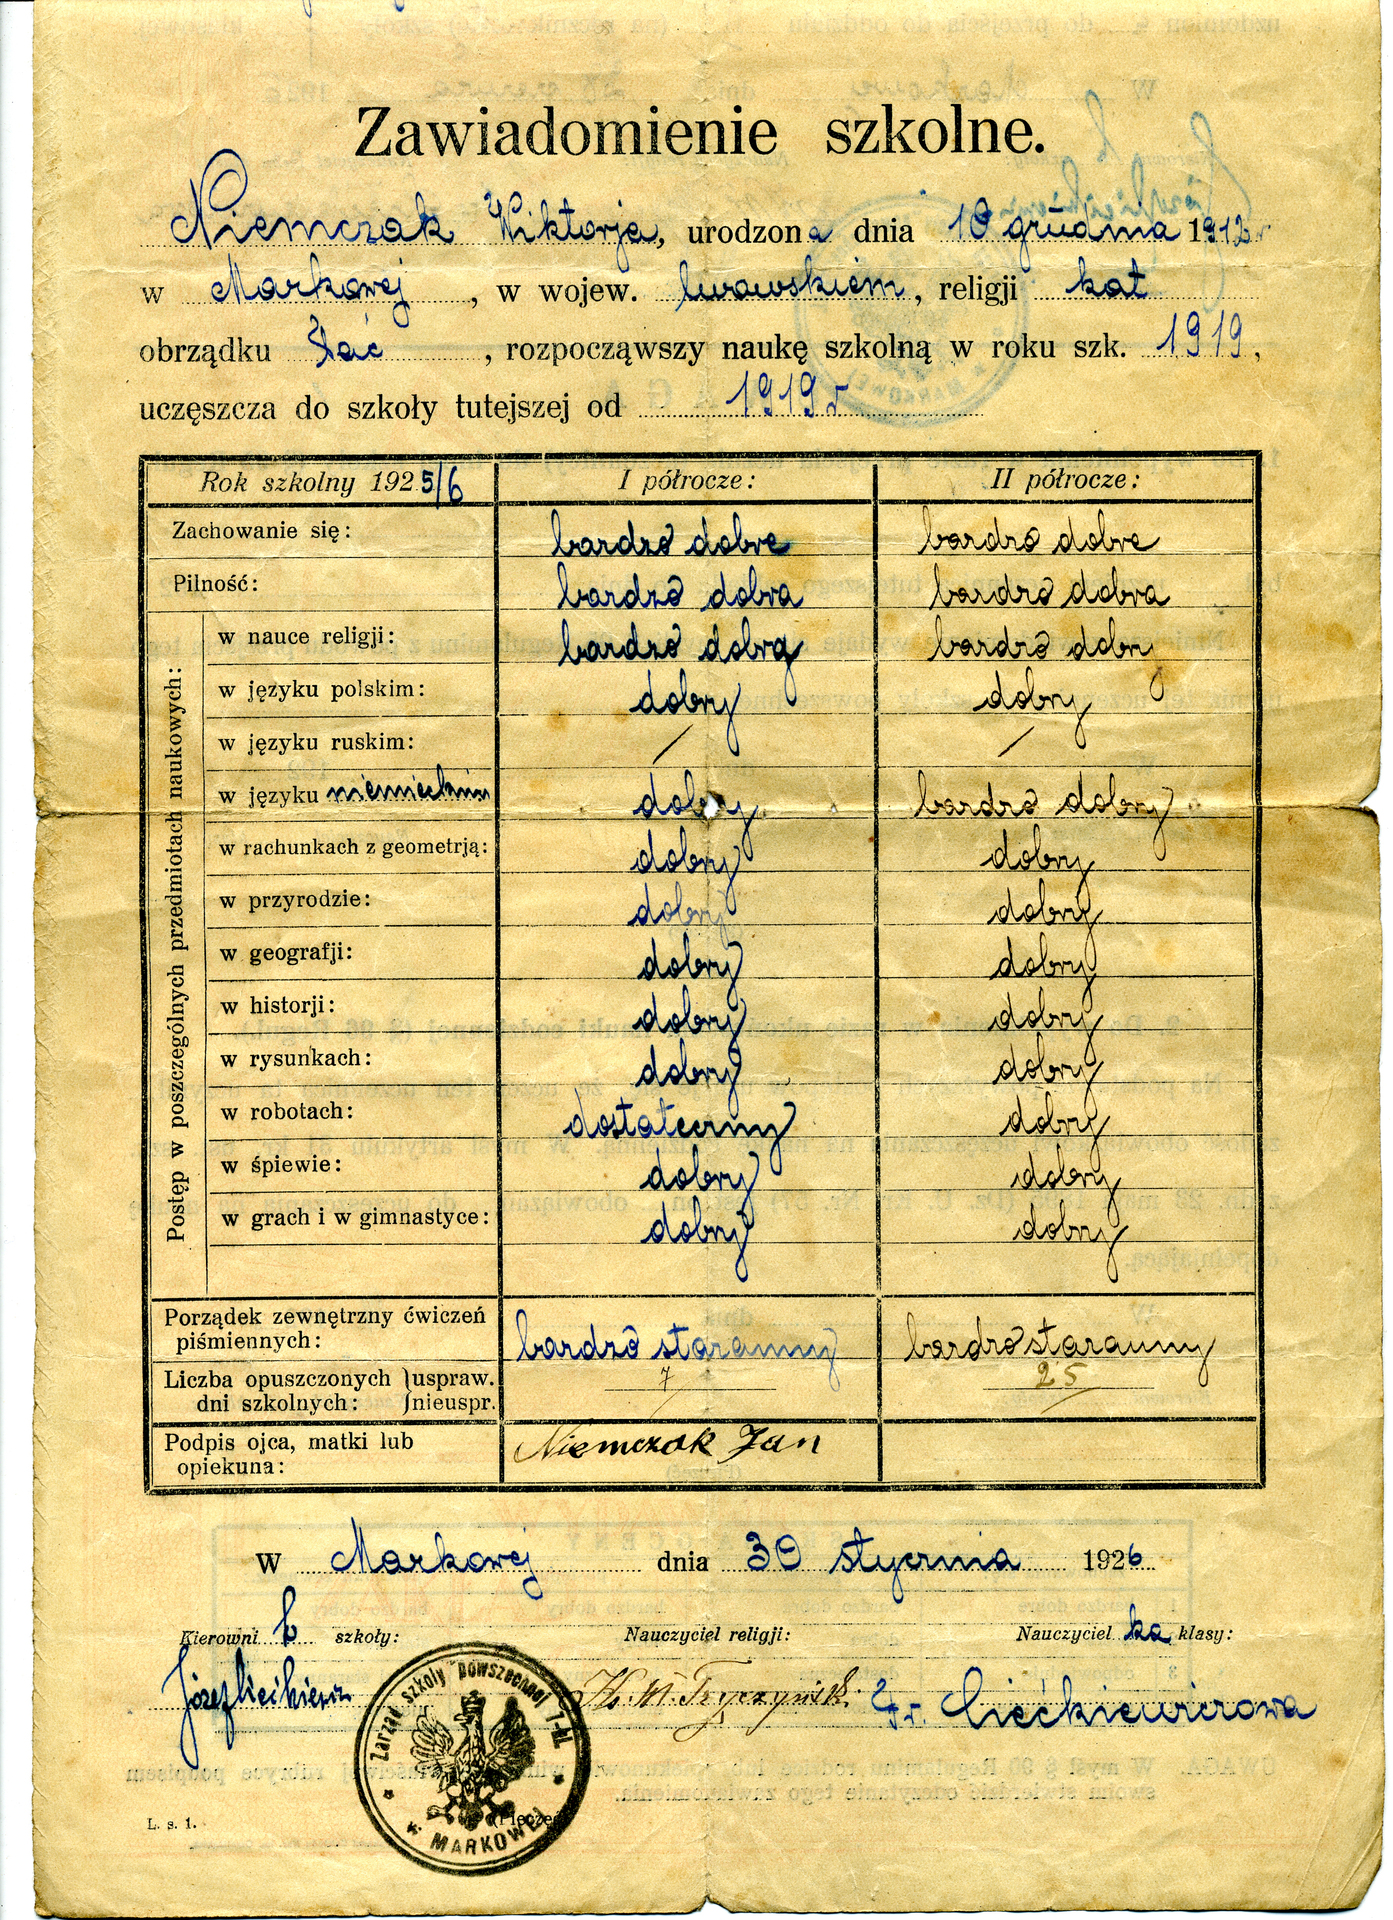 Zawiadomienie szkolne.
Niemczak Wiktorja, urodzona dnia 10 grudnia 1912 r
w Markowej, w wojew. lwowskiem, religji kat
obrządku łać, rozpocząwszy naukę szkolną w roku szk. 1919,
uczęszcza do szkoły tutejszej od 1919 r
Rok szkolny 1925/6 I półrocze: II półrocze:
Zachowanie się: bardzo dobre bardzo dobre
Pilność: bardzo dobra bardzo dobra
Postęp w poszczególnych przedmiotach naukowych:
w nauce religji: bardzo dobry bardzo dobry
w języku polskim: dobry dobry
w języku ruskim: / /
w języku niemieckim dobry bardzo dobry
w rachunkach z geometrją: dobry dobry
w przyrodzie: dobry dobry
w geografji: dobry dobry
w historji: dobry dobry
w rysunkach: dobry dobry
w robotach: dostateczny dobry
w śpiewie: dobry dobry
w grach i w gimnastyce: dobry dobry
Porządek zewnętrzny ćwiczeń
piśmiennych: bardzo staranny bardzo staranny
Liczba opuszczonych }uspraw. 7 25
dni szkolnych: }nieuspr.
Podpis ojca, matki lub Niemczak Jan
opiekuna:
W Markowej dnia 30 stycznia 1926
Kierownik szkoły: Nauczyciel religji: Nauczycielka klasy:
Józef Ciećkiewicz Fr. Ciećkiewiczowa
Zarząd szkoły powszechnej 7-kl.
w MARKOWEJ
(Pieczęć)
L. s. 1.